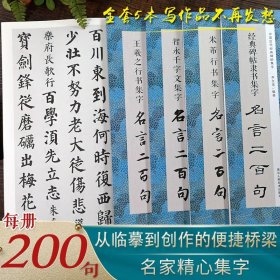 全套5本 写作品不再发愁
百川東到海何時復
少壯不努力老大徒傷悲
樂府長歌行
百學須先立志
朱
寶劍鋒從磨礪出梅花
王羲之行书集字
名言二百句
智永千字文集字
名言二百句
米芾行书集字
名言二百句
经典碑帖隶书集字
名言二百句
每册
200句
从临摹到创作的便捷桥梁
名家精心集字